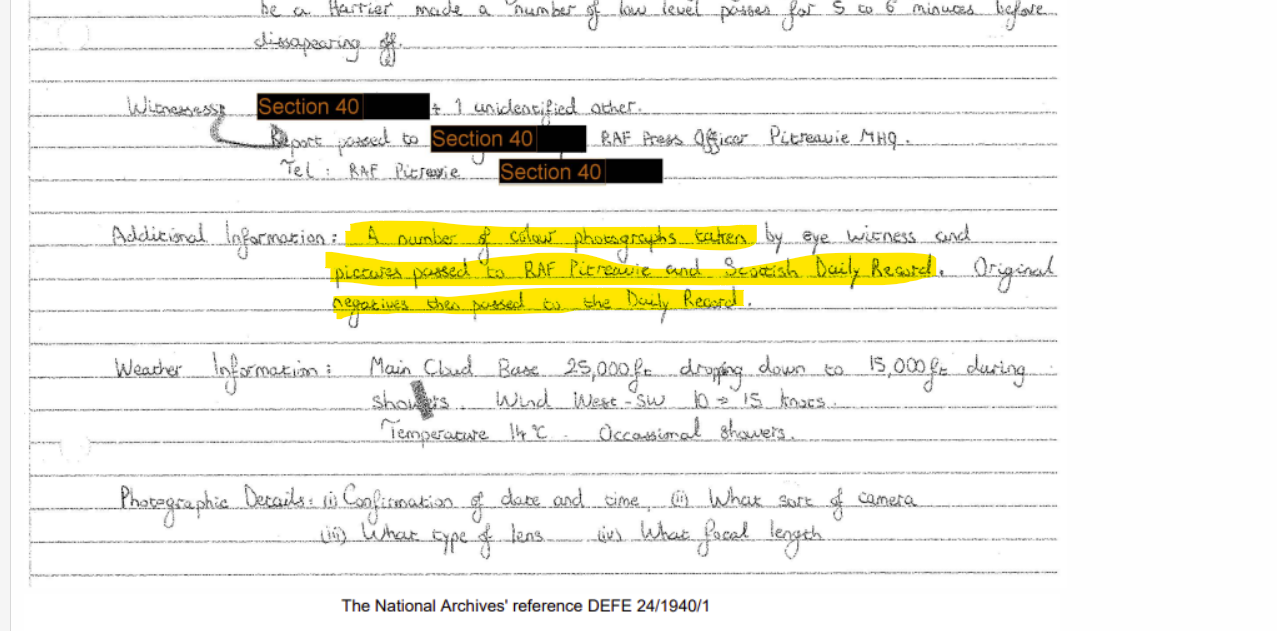 be a Harrier, made a number of low level passes for 5 to 6 minutes before
dissapearing off.
Witnesses: Section 40 + 1 unidentified other.
Report passed to Section 40 RAF Press Officer Pitreavie MHQ.
Tel : RAF Pitreavie Section 40
Additional Information : A number of colour photographs taken by eye witness and
pictures passed to RAF Pitreavie and Scottish Daily Record. Original
negatives then passed to the Daily Record.
Weather Information : Main Cloud Base 25,000ft dropping down to 15,000ft during
showers. Wind West-SW 10 → 15 knots.
Temperature 14°C. Occassional showers.
Photographic Details: (i) Confirmation of date and time (ii) What sort of camera
(iii) What type of lens (iv) What focal length
The National Archives' reference DEFE 24/1940/1